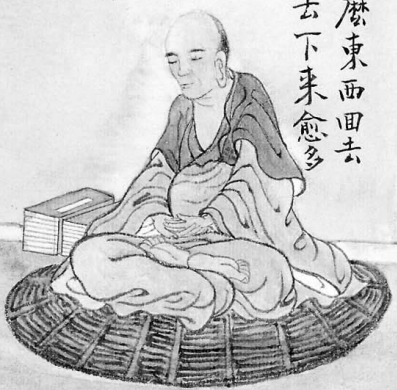 麼東西回去
去下来愈多